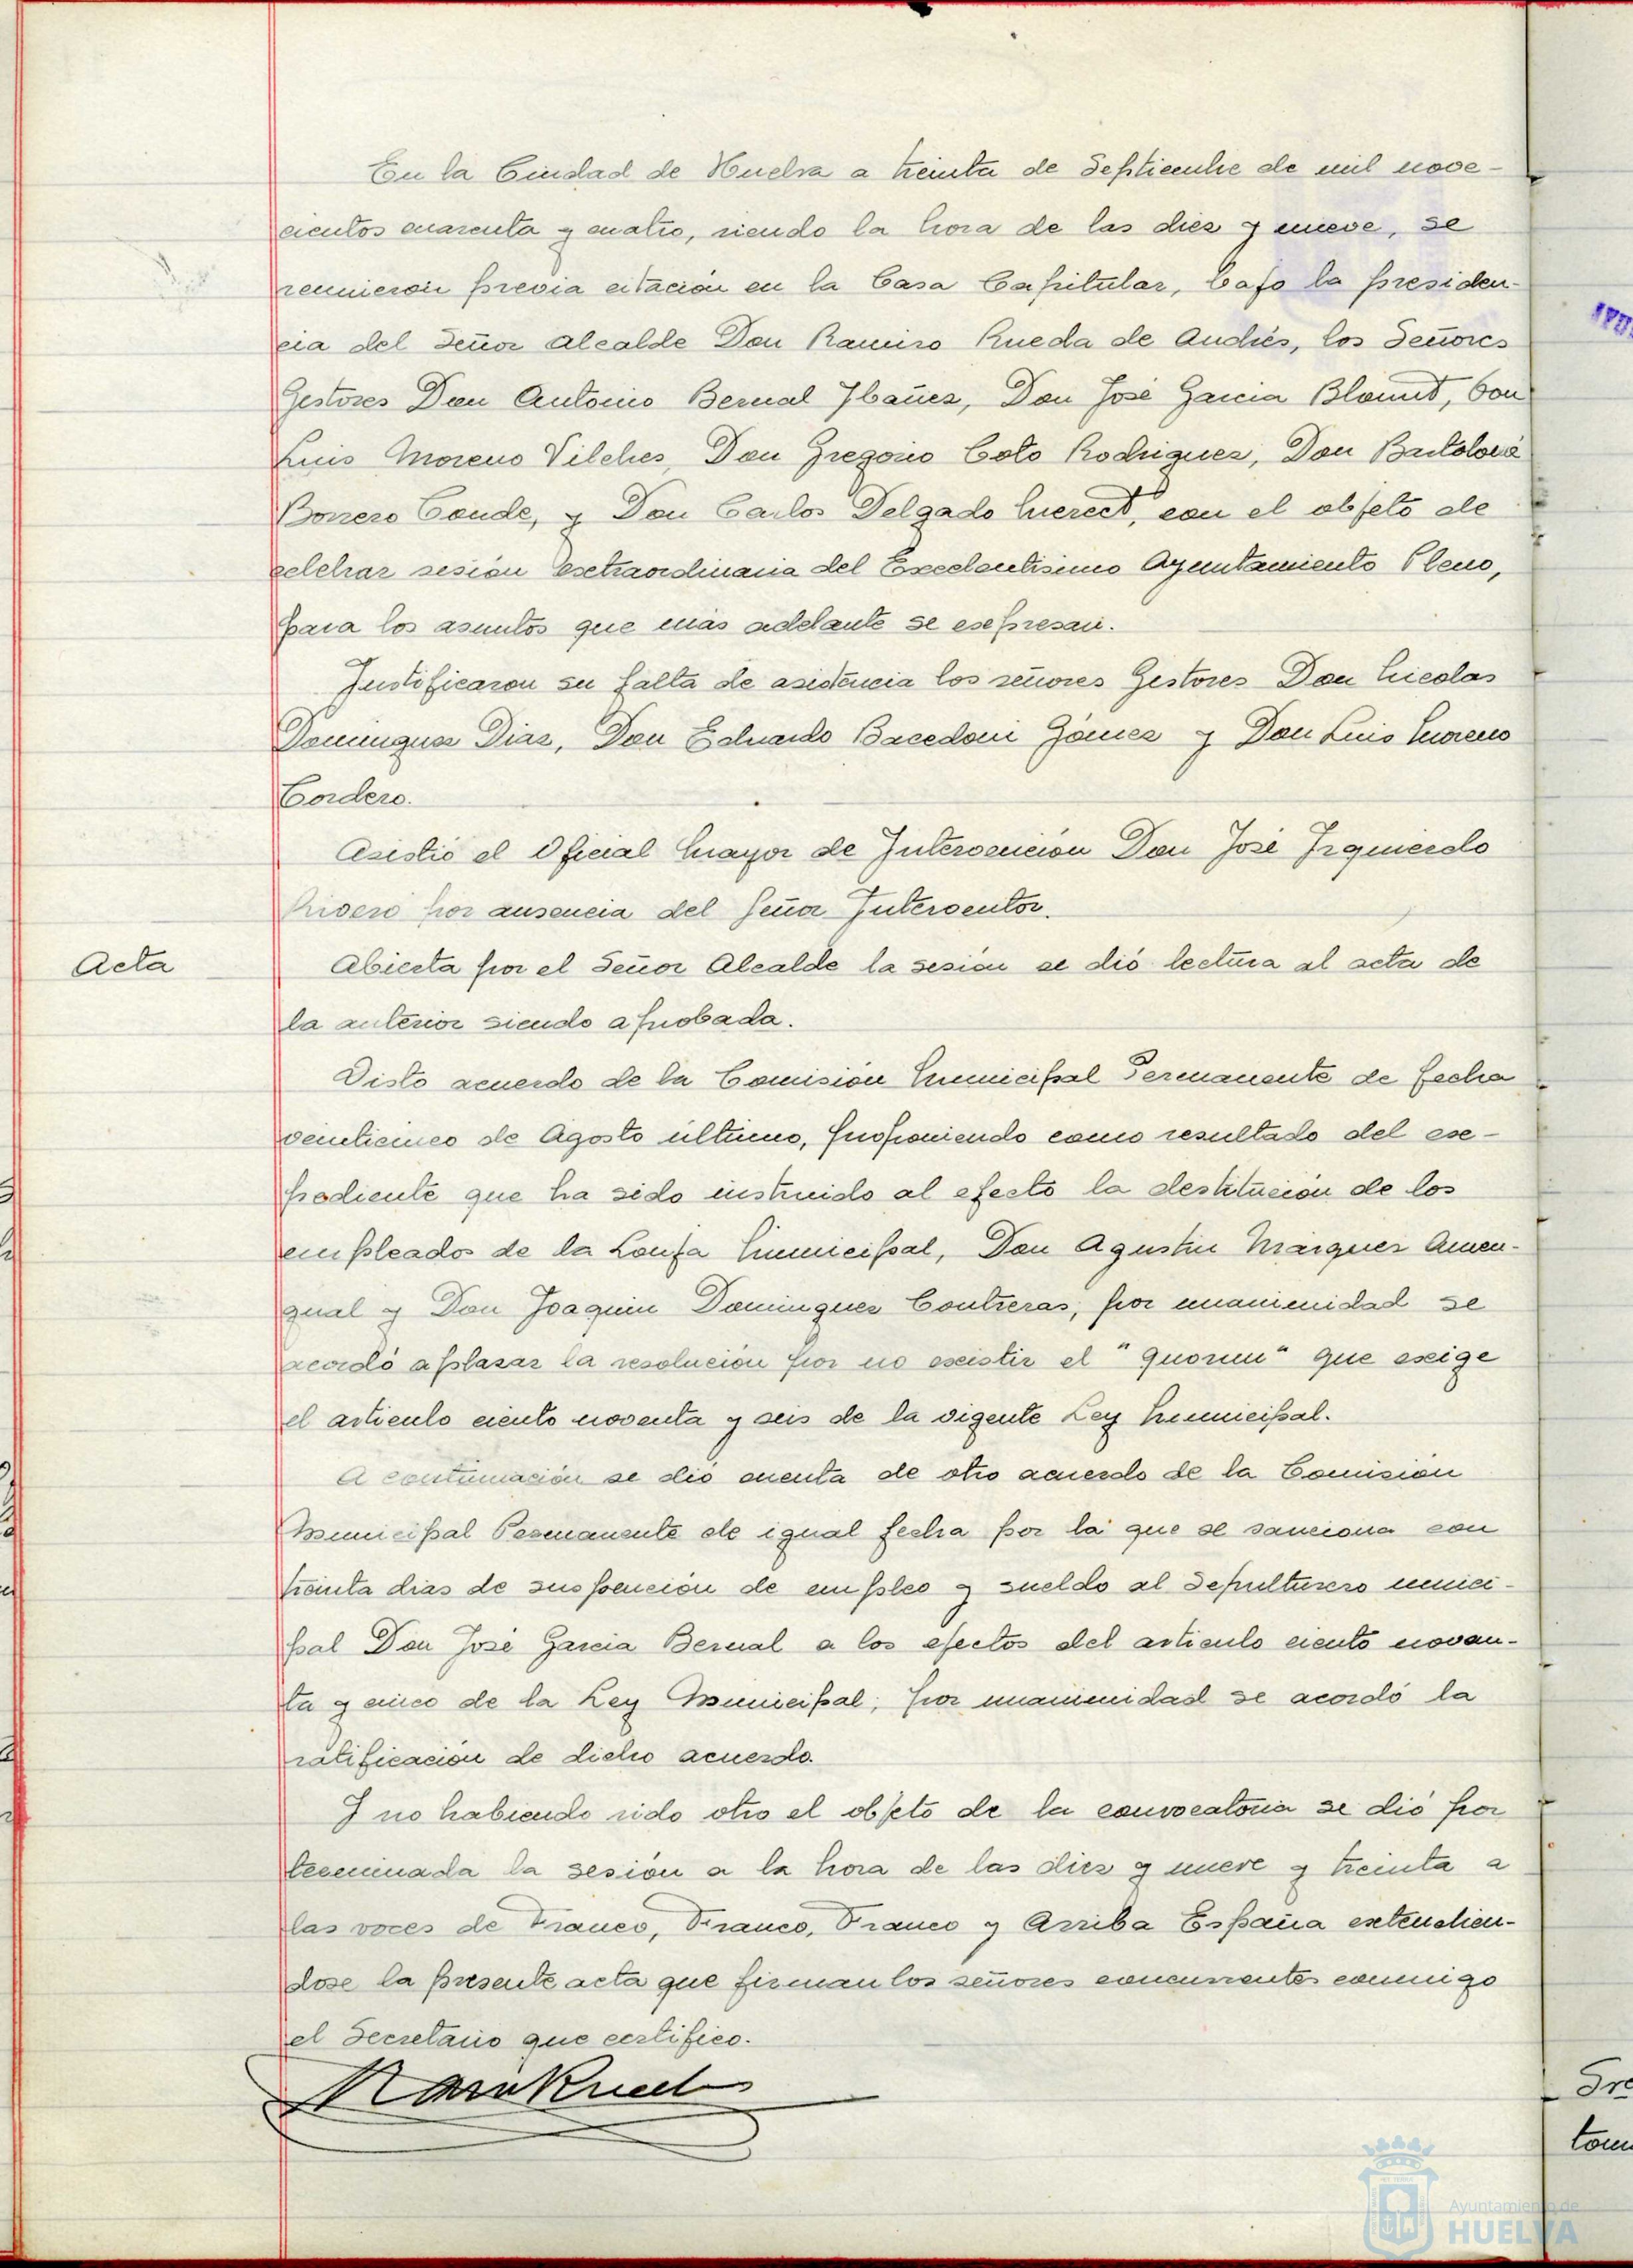 En la Ciudad de Huelva a treinta de Septiembre de mil nove-
cientos cuarenta y cuatro, siendo la hora de las diez y nueve, se
reunieron previa citación en la Casa Capitular, bajo la presiden-
cia del Señor Alcalde Don Ramiro Rueda de Andrés, los Señores
Gestores Don Antonio Bernal Ybañez, Don José Garcia Blount, Don
Luis Moreno Vilches, Don Gregorio Coto Rodriguez, Don Bartolomé
Borrero Conde, y Don Carlos Delgado con el objeto de
celebrar sesión extraordinaria del Excelentisimo Ayuntamiento Pleno,
para los asuntos que más adelante se expresan.
Justificaron su falta de asistencia los señores Gestores Don Nicolas
Dominguez Diaz, Don Eduardo Gómez y Don Luis Moreno
Cordero.
Asistió el Oficial Mayor de Intervención Don José Izquierdo
Rivero por ausencia del Señor Interventor.
Acta
Abierta por el Señor Alcalde la sesión se dió lectura al acta de
la anterior siendo aprobada.
Visto acuerdo de la Comisión Municipal Permanente de fecha
veinticinco de Agosto último, proponiendo como resultado del ex-
pediente que ha sido instruido al efecto la destitución de los
empleados de la Lonja Municipal, Don Agustin Marquez Amen-
gual y Don Joaquin Dominguez Contreras, por unanimidad se
acordó aplazar la resolución por no existir el "quorum" que exige
el articulo ciento noventa y seis de la vigente Ley Municipal.
A continuación se dió cuenta de otro acuerdo de la Comisión
Municipal Permanente de igual fecha por la que se sanciona con
treinta dias de suspención de empleo y sueldo al Sepulturero munici-
pal Don José Garcia Bernal a los efectos del articulo ciento noven-
ta y cinco de la Ley Municipal; por unanimidad se acordó la
ratificación de dicho acuerdo.
Y no habiendo sido otro el objeto de la convocatoria se dió por
terminada la sesión a la hora de las diez y nueve y treinta a
las voces de Franco, Franco, Franco y Arriba España extendien-
dose la presente acta que firman los señores concurrentes conmigo
el Secretario que certifico.
Ayuntamiento de
HUELVA